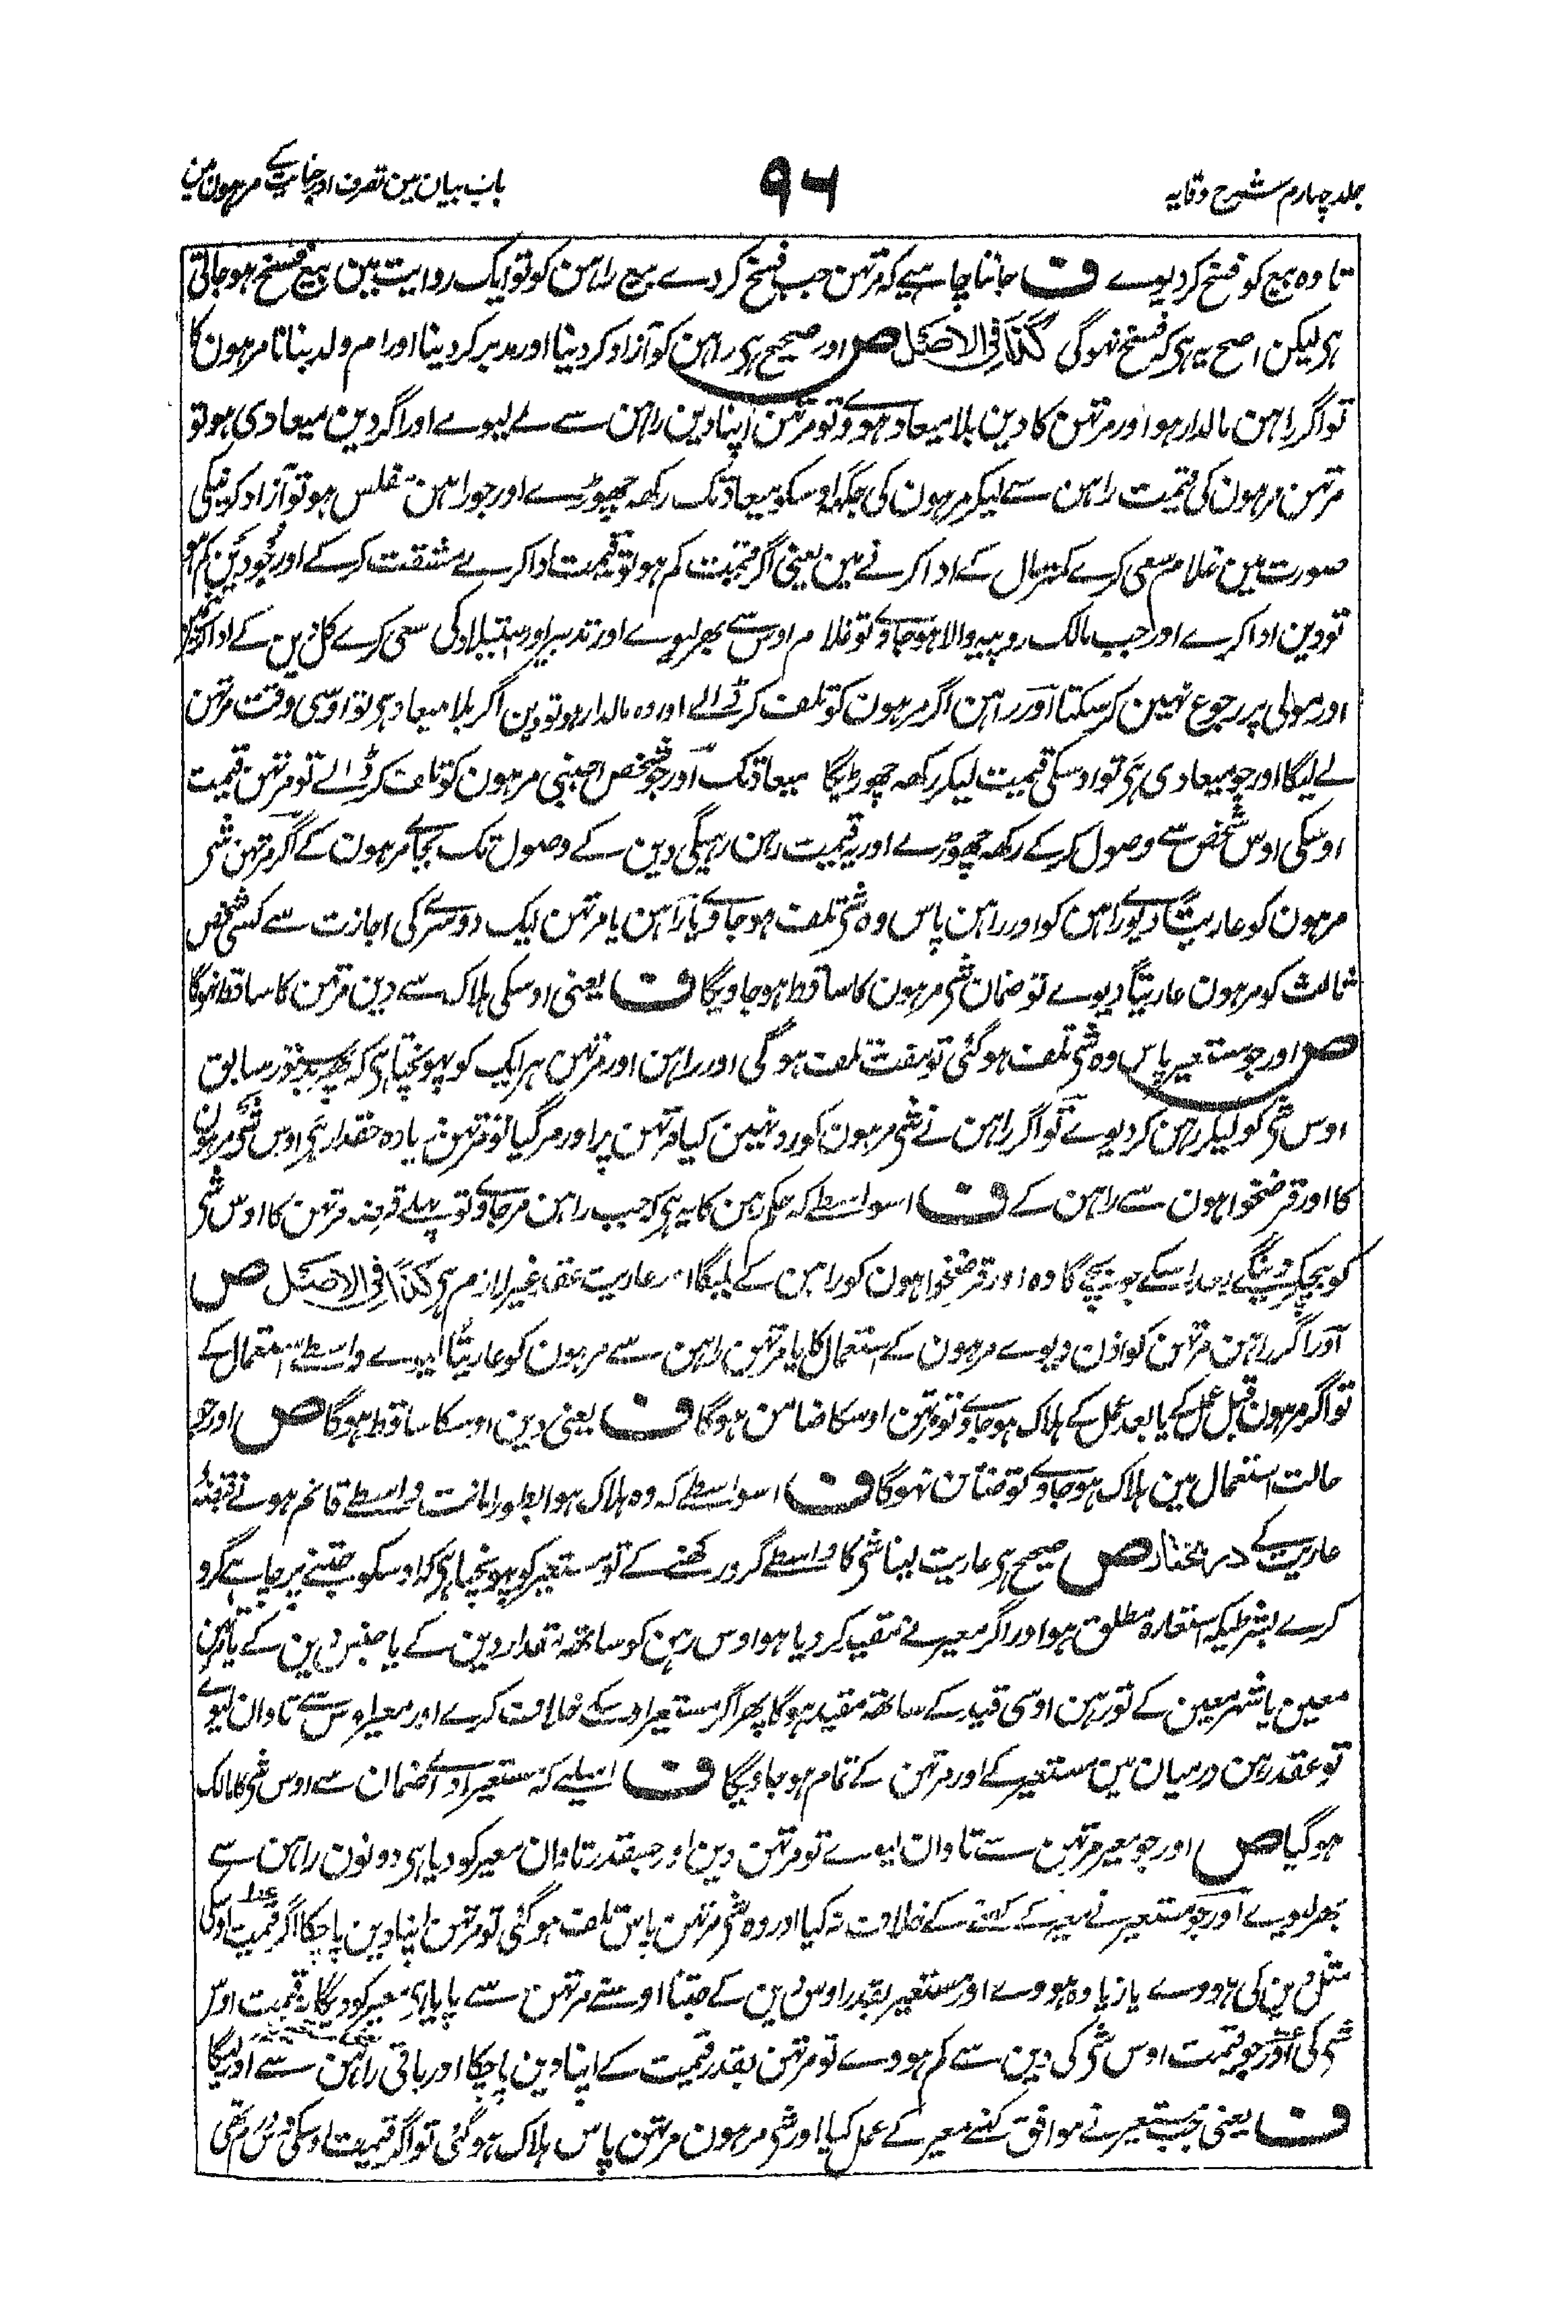 جلد چہارم شرح وقایہ
۹۶
باب بیان مین تصرف اور جنایت کے مرہون مین
تا وہ بیع کو فسخ کر دیوے ف جاننا چاہیے کہ مرتہن جب فسخ کر دے بیع راہن کو تو ایک روایت مین بیع فسخ ہو جاتی
ہی لیکن اصح یہ ہی کہ فسخ نہوگی کذا فی الاصل ص اور صحیح ہی راہن کو آزاد کر دینا اور مدبر کر دینا اور ام ولد بنانا مرہون کا
تو اگر راہن مالدار ہو اور مرتہن کا دین بلا میعاد ہووے تو مرتہن اپنا دین راہن سے لے لیوے اور اگر دین میعادی ہو تو
مرتہن مرہون کی قیمت راہن سے لیکر مرہون کی جگہ اوسکو میعاد تک رکھ چھوڑے اور جو راہن مفلس ہو تو آزاد کرنیکی
صورت مین غلام سعی کرے کمتر مال کے ادا کرنے مین یعنی اگر قیمت کم ہو تو قیمت ادا کرے مشقت کر کے اور جو دین کم ہو
تو دین ادا کرے اور جب مالک روپیہ والا ہو جاوے تو غلام اوس سے بھر لیوے اور تدبیر اور استیلاد کی سعی کرے کل دین کے ادا کرنے مین
اور مولی پر رجوع نہین کر سکتا اور راہن اگر مرہون کو تلف کر ڈالے اور وہ مالدار ہو تو دین اگر بلا میعاد ہی تو اوسی وقت مرتہن
لے لیگا اور جو میعادی ہی تو اوسکی قیمت لیکر رکھ چھوڑیگا میعاد تک اور جو شخص اجنبی مرہون کو تلف کر ڈالے تو مرتہن قیمت
اوسکی اوس شخص سے وصول کر کے رکھ چھوڑے اور یہ قیمت رہن رہیگی دین کے وصول تک بجاے مرہون کے اگر مرتہن شی
مرہون کو عاریتاً دیوے راہن کو اور راہن پاس وہ شی تلف ہو جاوے یا راہن یا مرتہن ایک دوسرے کی اجازت سے کسی شخص
ثالث کو مرہون عاریتاً دیوے تو ضمان شی مرہون کا ساقط ہو جاویگا ف یعنی اوسکی ہلاک سے دین مرتہن کا ساقط نہوگا
ص اور جو مستعیر پاس وہ شی تلف ہو گئی تو مفت تلف ہوگی اور راہن اور مرتہن ہر ایک کو پہونچتا ہی کہ پھر بدستور سابق
اوس شی کو لیکر رہن کر دیوے تو اگر راہن نے شی مرہون کو رد نہین کیا مرتہن پر اور مر گیا تو مرتہن زیادہ حقدار ہی اوس شی مرہون
کا اور قرضخواہون سے راہن کے ف اسواسطے کہ حکم رہن کا یہ ہی کہ جب راہن مر جاوے تو پہلے قرضہ مرتہن کا اوس شی
کو بیچکر دینگے بعد اسکے جو بچے گا وہ اور قرضخواہون کو راہن کے ملیگا اور عاریت عقد غیر لازم ہی کذا فی الاصل ص
اور اگر راہن مرتہن کو اذن دیوے مرہون کے استعمال کا یا مرتہن راہن سے مرہون کو عاریتاً لیوے واسطے استعمال کے
تو اگر مرہون قبل عمل کے یا بعد عمل کے ہلاک ہو جاوے تو مرتہن اوسکا ضامن ہوگا ف یعنی دین اوسکا ساقط ہوگا ص اور جو
حالت استعمال مین ہلاک ہو جاوے تو ضامن نہوگا ف اسواسطے کہ وہ ہلاک ہوا بطور امانت واسطے قائم ہونے قبضہ
عاریت کے در مختار ص صحیح ہی عاریت لینا شی کا واسطے گرو رکھنے کے تو مستعیر کو پہونچتا ہی کہ اوسکو جتنے پر چاہے گرو
کرے بشرطیکہ استعارہ مطلق ہو اور اگر معیر نے مقید کر دیا ہو اوس رہن کو ساتھ مقدار دین کے یا جنس دین کے یا مرتہن
معین یا شہر معین کے تو رہن اوسی قید کے ساتھ مقید ہوگا پھر اگر مستعیر اوسکے خلاف کرے اور معیر اوس سے تاوان لیوے
تو عقد رہن درمیان مین مستعیر کے اور مرتہن کے تمام ہو جاویگا ف اسلیے کہ مستعیر اداے ضمان سے اوس شی کا مالک
ہو گیا ص اور جو معیر مرتہن سے تاوان لیوے تو مرتہن دین اور جسقدر تاوان معیر کو دیا ہی دونون راہن سے
بھر لیوے اور جو مستعیر نے معیر کے کہنے کے خلاف نہ کیا اور وہ شی مرتہن پاس تلف ہو گئی تو مرتہن اپنا دین پا چکا اگر قیمت اوسکی
مثل دین کی ہووے یا زیادہ ہووے اور مستعیر بقدر اوس دین کے جتنا اوسنے مرتہن سے پایا ہی معیر کو دیگا نہ قیمت اوس
شی کی اور جو قیمت اوس شی کی دین سے کم ہووے تو مرتہن بقدر قیمت کے اپنا دین پا چکا اور باقی راہن سے اور لیگا
ف یعنی جب مستعیر نے موافق کہنے معیر کے عمل کیا اور شی مرہون مرتہن پاس ہلاک ہو گئی تو اگر قیمت اوسکی دس درم تھی